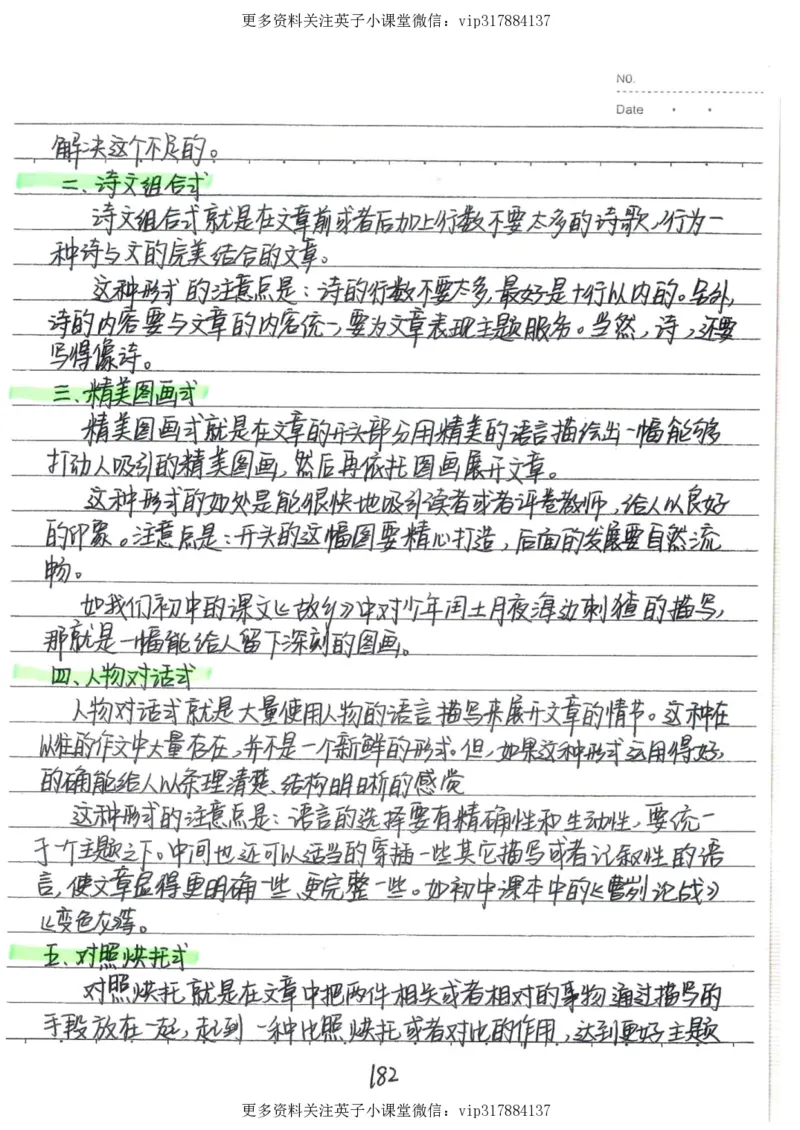 更多资料关注英子小课堂微信：vip317884137
NO.
Date
解决这个不足的。
二、诗文组合式
诗文组合式就是在文章前或者后加上行数不要太多的诗歌，行为一
种诗与文的完美结合的文章。
这种形式的注意点是：诗的行数不要太多，最好是十行以内的。另外，
诗的内容要与文章的内容统一，要为文章表现主题服务。当然，诗，还要
写得像诗。
三、精美图画式
精美图画式就是在文章的开头部分用精美的语言描绘出一幅能够
打动人吸引的精美图画，然后再依托图画展开文章。
这种形式的好处是能很快地吸引读者或者评卷教师，给人以良好
的印象。注意点是：开头的这幅图要精心打造，后面的发展要自然流
畅。
如我们初中的课文《故乡》中对少年闰土月夜海边刺猹的描写，
那就是一幅能给人留下深刻的图画。
四、人物对话式
人物对话式就是大量使用人物的语言描写来展开文章的情节。这种在
以往的作文中大量存在，并不是一个新鲜的形式。但，如果这种形式运用得好，
的确能给人以条理清楚、结构明晰的感觉
这种形式的注意点是：语言的选择要有精确性和生动性，要统一
于个主题之下。中间也还可以适当的穿插一些其它描写或者记叙性的语
言，使文章显得更明确一些、更完整一些。如初中课本中的《曹刿论战》
《变色龙》等。
五、对照烘托式
对照烘托就是在文章中把两件相关或者相对的事物通过描写的
手段放在一起，起到一种比照烘托或者对比的作用，达到更好主题
182
更多资料关注英子小课堂微信：vip317884137